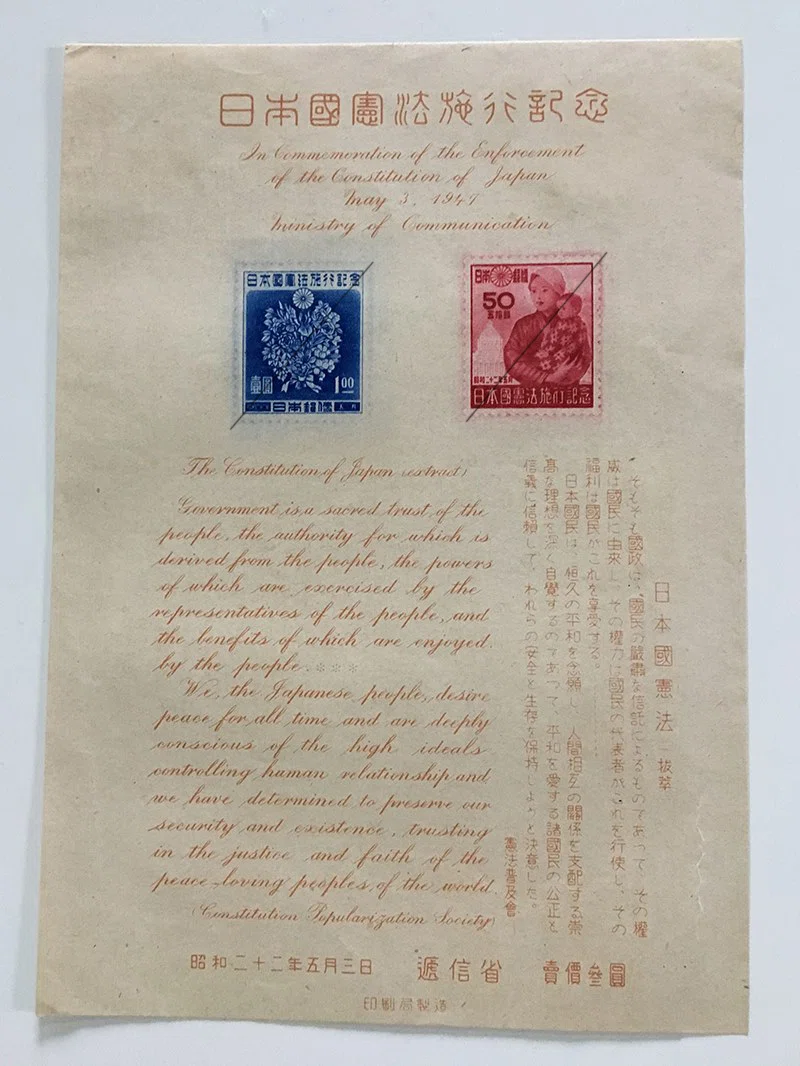 日本國憲法施行記念
In Commemoration of the Enforcement
of the Constitution of Japan
May 3, 1947
Ministry of Communication
日本國憲法施行記念
壹圓
1.00
日本郵便
日本郵便
50
五拾錢
昭和二十二年五月
日本國憲法施行記念
The Constitution of Japan (extract)
Government is a sacred trust of the
people, the authority for which is
derived from the people, the powers
of which are exercised by the
representatives of the people, and
the benefits of which are enjoyed
by the people. ***
We, the Japanese people, desire
peace for all time and are deeply
conscious of the high ideals
controlling human relationship and
we have determined to preserve our
security and existence, trusting
in the justice and faith of the
peace-loving peoples of the world.
(Constitution Popularization Society)
日本國憲法―抜萃
そもそも國政は、國民の嚴肅な信託によるものであつて、その權
威は國民に由來し、その權力は國民の代表者がこれを行使し、その
福利は國民がこれを享受する。……
日本國民は、恒久の平和を念願し、人間相互の關係を支配する崇
高な理想を深く自覺するのであつて、平和を愛する諸國民の公正と
信義に信頼して、われらの安全と生存を保持しようと決意した。
憲法普及會
昭和二十二年五月三日 遞信省 賣價參圓
印刷局製造